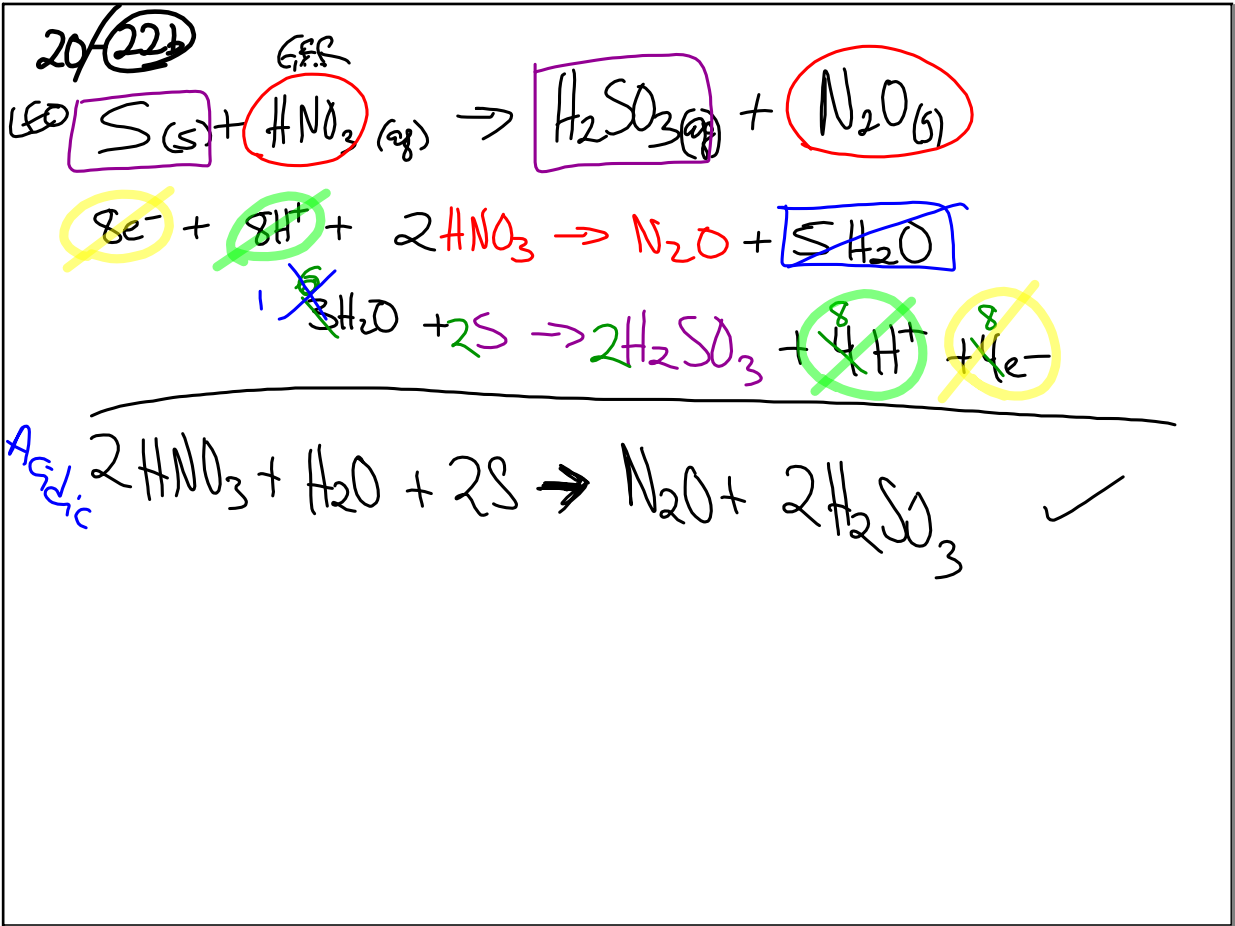 20/22b
GER
LEO S(s) + HNO₃ (aq) → H₂SO₃(aq) + N₂O(g)
8e⁻ + 8H⁺ + 2HNO₃ → N₂O + 5H₂O
1 6 3H₂O + 2S → 2H₂SO₃ + 8 4H⁺ + 8 4e⁻
Acidic 2HNO₃ + H₂O + 2S → N₂O + 2H₂SO₃ ✓